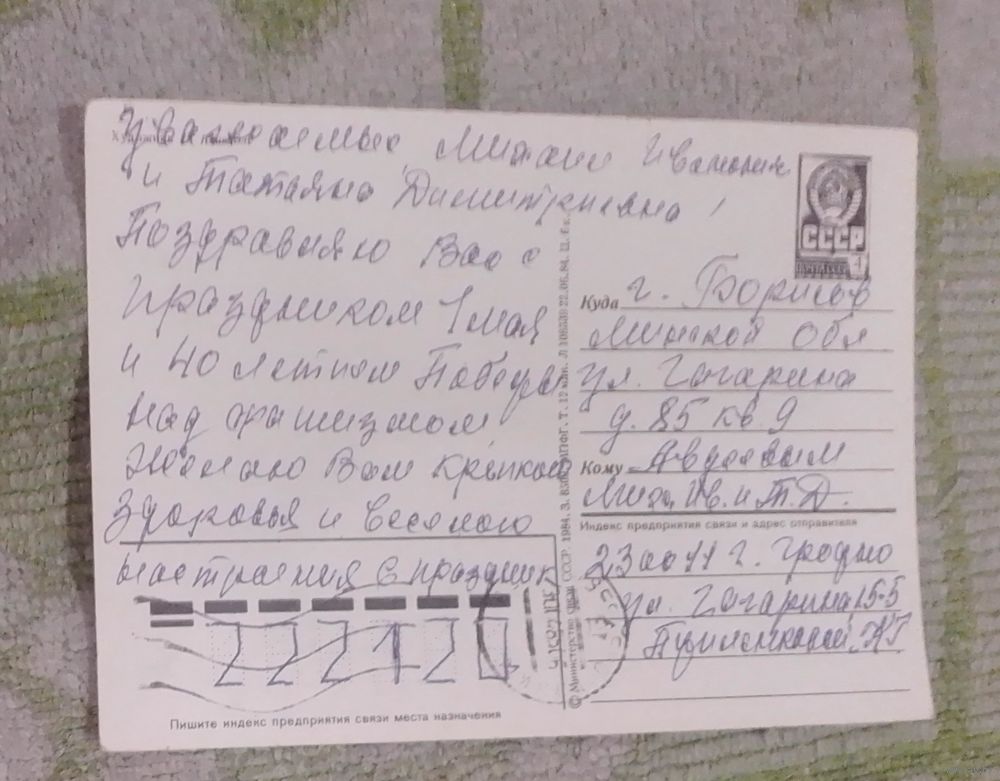 Уважаемые Михаил Иванович
и Татьяна Димитриевна!
Поздравляю Вас с
праздником 1 мая
и 40 летием Победы
над фашизмом
Желаю Вам крепкого
здоровья и веселого
настроения с праздник
222120
Пишите индекс предприятия связи места назначения
© Министерство связи СССР. 1984. З.
22.06.84. Ц. 4 к.
СССР
ПОЧТА СССР
4
Куда г. Борисов
Минской обл
ул. Гагарина
д. 85 кв. 9
Кому Авдеевым
Миха. Ив. и Т. Д.
Индекс предприятия связи и адрес отправителя
230011 г. Гродно
ул. Гагарина 15-5